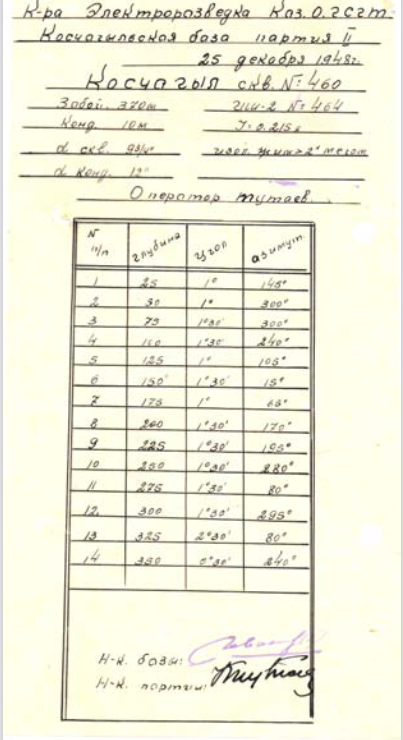 К-ра Электроразведка Каз.О.ГСГТ.
Косчагыльская база партия II
25 декабря 1948г.
Косчагыл скв. №: 460
Забой. 370м
№ 464
Конд. 10м
J=0.215
d скв. 9¾"
d конд. 12"
Оператор Тутаев.
N п/п глубина угол азимут.
1 25 1° 145°
2 50 1° 300°
3 75 1°30' 300°
4 100 1°30' 240°
5 125 1° 105°
6 150 1°30' 15°
7 175 1° 65°
8 200 1°30' 170°
9 225 1°30' 195°
10 250 1°30' 280°
11 275 1°30' 80°
12. 300 1°30' 295°
13 325 2°30' 80°
14 350 0°30' 240°
Н-к. базы:
Н-к. партии: